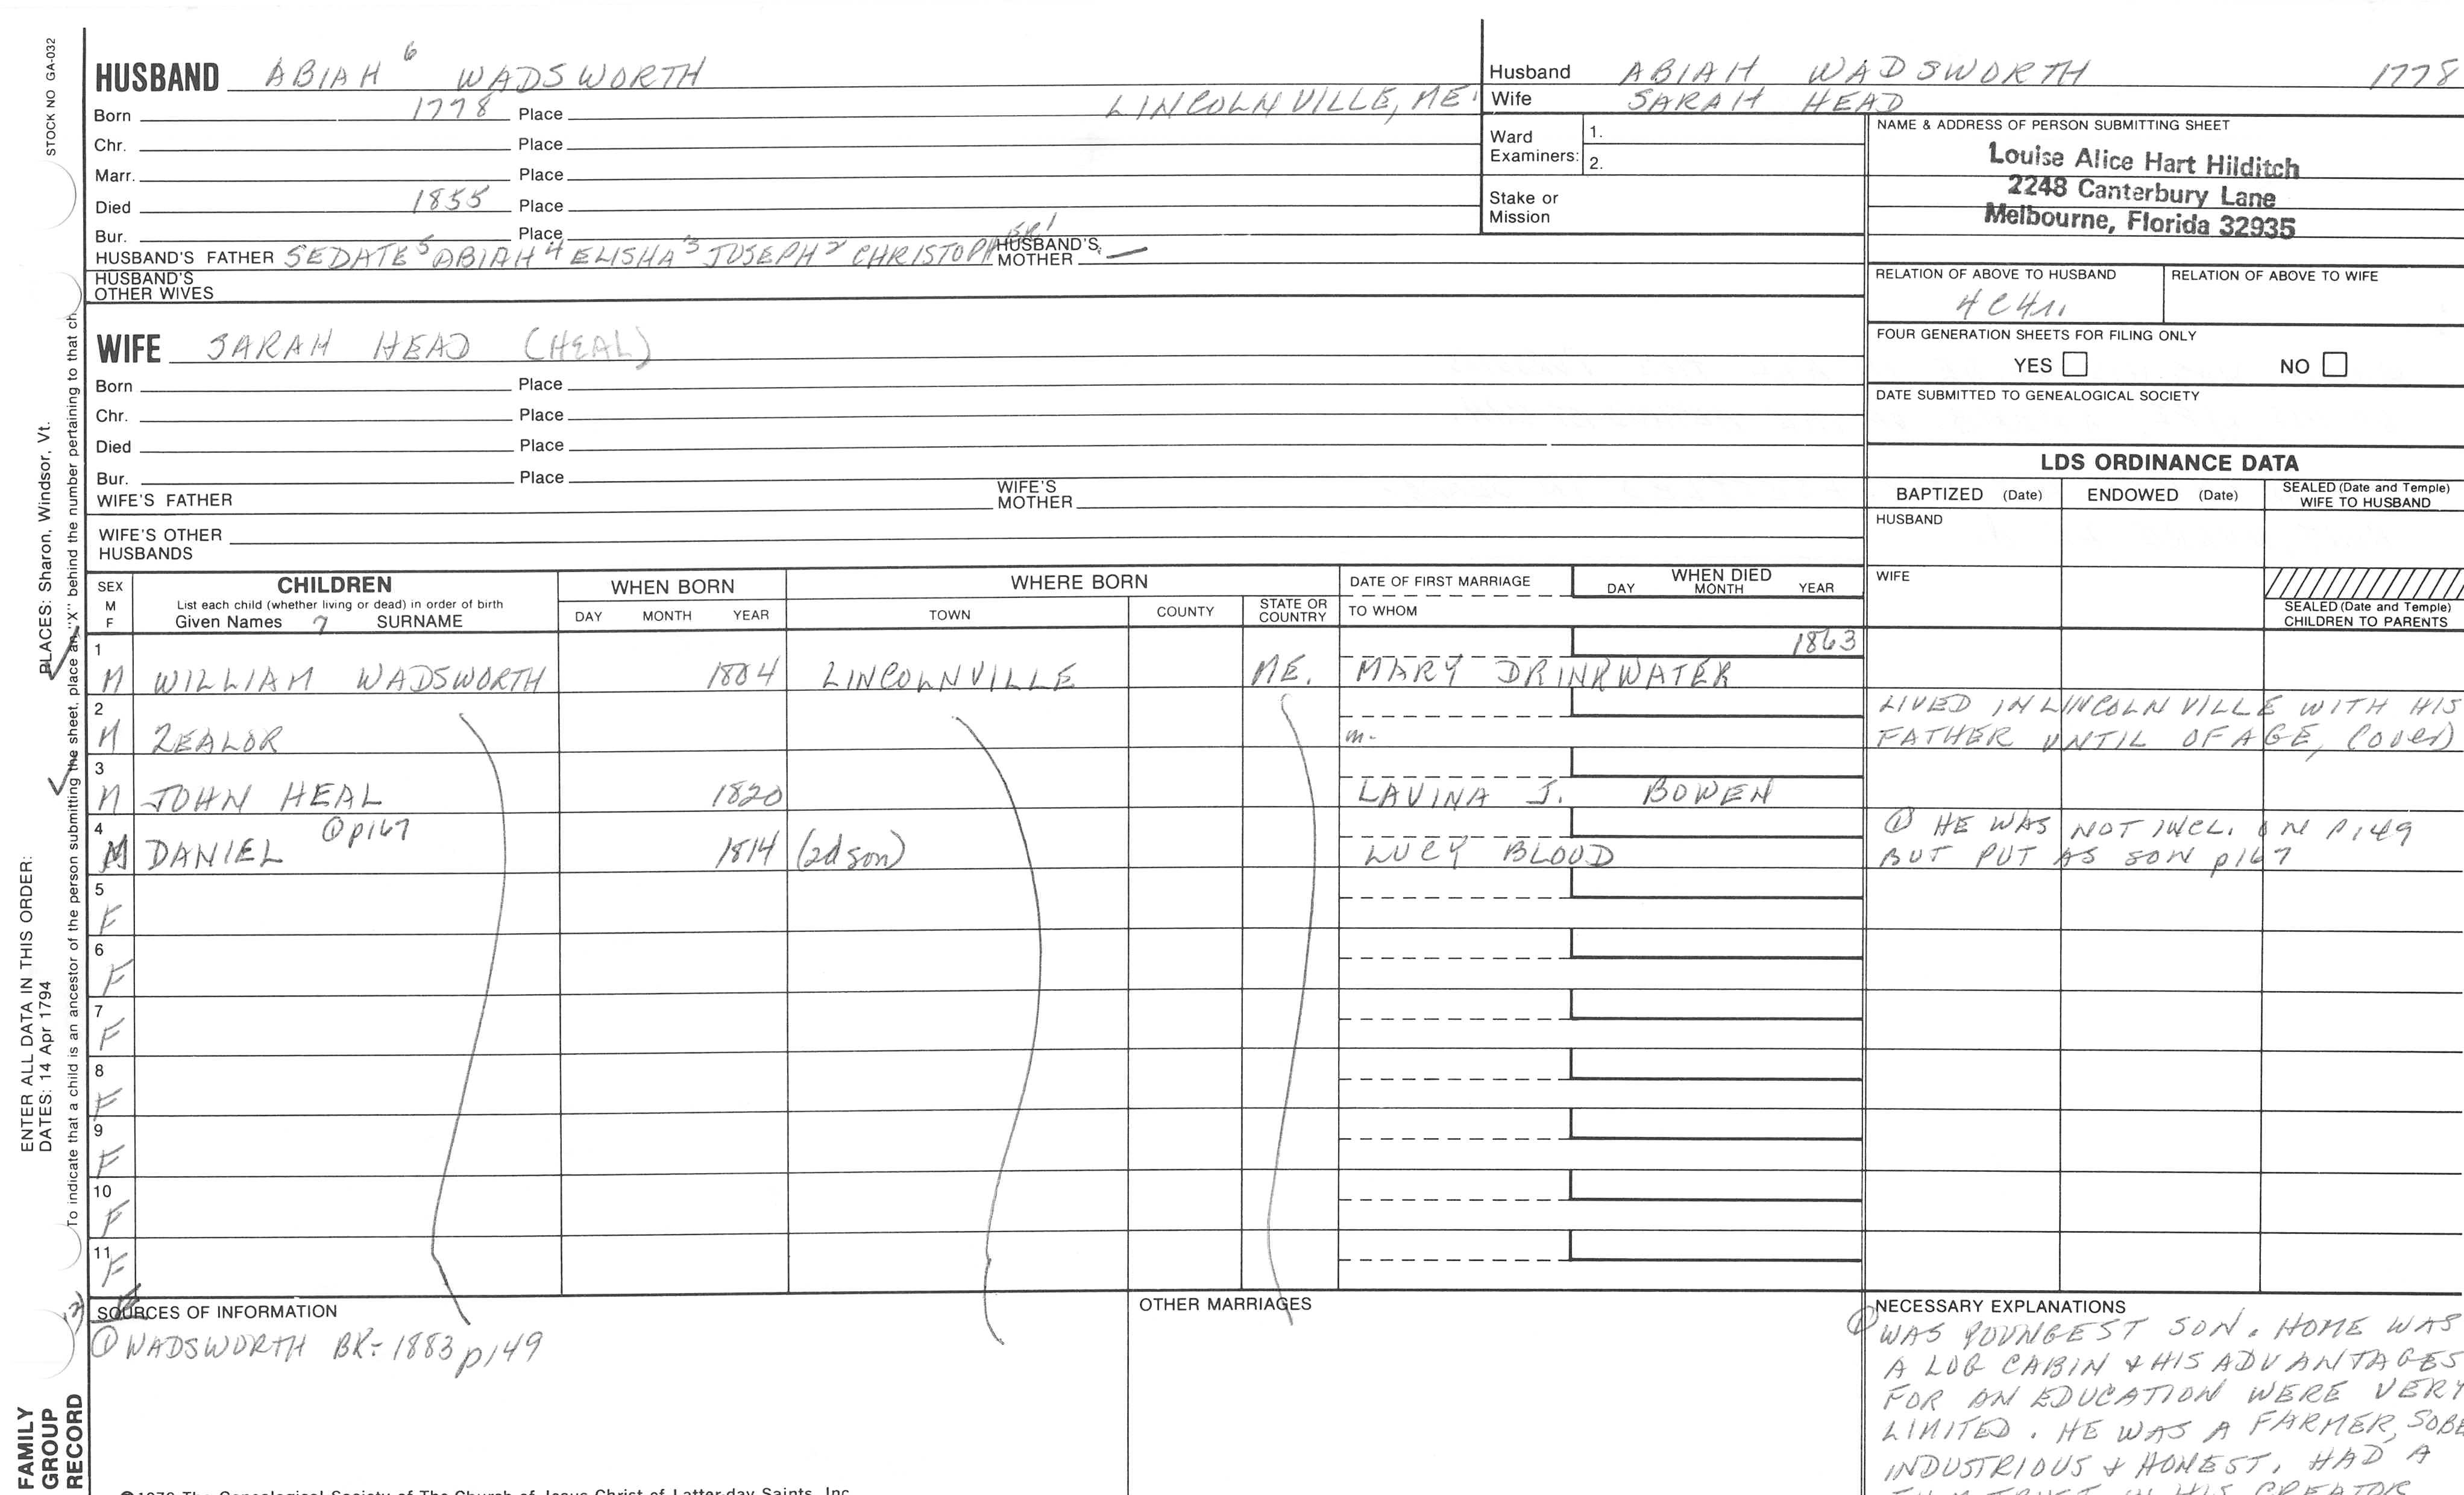 STOCK NO GA-032
HUSBAND ABIAH 6 WADSWORTH
Born 1778 Place LINCOLNVILLE, ME.
Chr. Place
Marr. Place
Died 1855 Place
Bur. Place
HUSBAND'S FATHER SEDATE 5 ABIAH 4 ELISHA 3 JOSEPH 2 CHRISTOPHER 1 HUSBAND'S MOTHER —
HUSBAND'S OTHER WIVES
WIFE SARAH HEAD (HEAL)
Born Place
Chr. Place
Died Place
Bur. Place
WIFE'S FATHER WIFE'S MOTHER
WIFE'S OTHER HUSBANDS
Husband ABIAH WADSWORTH 1778
Wife SARAH HEAD
Ward Examiners: 1.
2.
Stake or Mission
NAME & ADDRESS OF PERSON SUBMITTING SHEET
Louise Alice Hart Hilditch
2248 Canterbury Lane
Melbourne, Florida 32935
RELATION OF ABOVE TO HUSBAND RELATION OF ABOVE TO WIFE
4C4r.
FOUR GENERATION SHEETS FOR FILING ONLY
YES NO
DATE SUBMITTED TO GENEALOGICAL SOCIETY
LDS ORDINANCE DATA
BAPTIZED (Date) ENDOWED (Date) SEALED (Date and Temple) WIFE TO HUSBAND
HUSBAND
WIFE
SEALED (Date and Temple) CHILDREN TO PARENTS
SEX M F
CHILDREN
List each child (whether living or dead) in order of birth
Given Names 7 SURNAME
WHEN BORN
DAY MONTH YEAR
WHERE BORN
TOWN COUNTY STATE OR COUNTRY
DATE OF FIRST MARRIAGE
TO WHOM
WHEN DIED
DAY MONTH YEAR
1 M WILLIAM WADSWORTH 1804 LINCOLNVILLE ME. MARY DRINKWATER 1863
2 M ZEALOR m. LIVED IN LINCOLNVILLE WITH HIS
FATHER UNTIL OF AGE, (over)
3 M JOHN HEAL 1820 LAVINA J. BOWEN
4 M DANIEL ① p167 1814 (2d son) LUCY BLOOD ① HE WAS NOT INCL. ON p149
BUT PUT AS SON p167
5 F
6 F
7 F
8 F
9 F
10 F
11 F
SOURCES OF INFORMATION
① WADSWORTH BK- 1883 p149
OTHER MARRIAGES
NECESSARY EXPLANATIONS
① WAS YOUNGEST SON. HOME WAS
A LOG CABIN & HIS ADVANTAGES
FOR AN EDUCATION WERE VERY
LIMITED. HE WAS A FARMER, SOBE
INDUSTRIOUS & HONEST, HAD A
TRUST IN HIS CREATOR
©1972 The Genealogical Society of The Church of Jesus Christ of Latter-day Saints, Inc.
PLACES: Sharon, Windsor, Vt.
To indicate that a child is an ancestor of the person submitting the sheet, place an "X" behind the number pertaining to that ch
ENTER ALL DATA IN THIS ORDER:
DATES: 14 Apr 1794
FAMILY
GROUP
RECORD